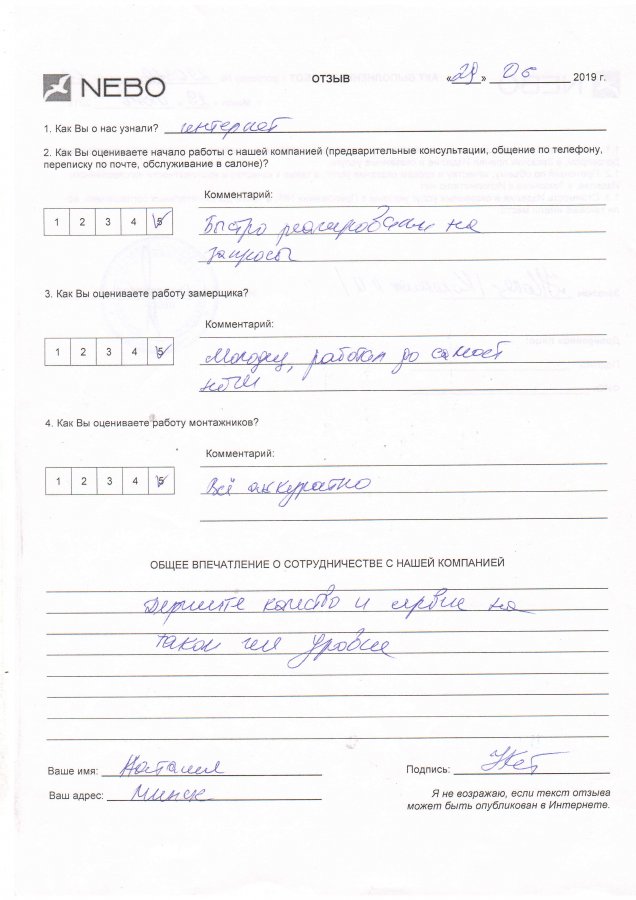 NEBO
ОТЗЫВ «29» 06 2019 г.
1. Как Вы о нас узнали? интернет
2. Как Вы оцениваете начало работы с нашей компанией (предварительные консультации, общение по телефону,
переписку по почте, обслуживание в салоне)?
Комментарий:
1 2 3 4 5
Быстро реагировали на
запросы
3. Как Вы оцениваете работу замерщика?
Комментарий:
1 2 3 4 5
Молодец, работал до самой
ночи
4. Как Вы оцениваете работу монтажников?
Комментарий:
1 2 3 4 5
Всё аккуратно
ОБЩЕЕ ВПЕЧАТЛЕНИЕ О СОТРУДНИЧЕСТВЕ С НАШЕЙ КОМПАНИЕЙ
Держите качество и сервис на
таком же уровне
Ваше имя: Наталия
Подпись:
Ваш адрес: Минск
Я не возражаю, если текст отзыва
может быть опубликован в Интернете.